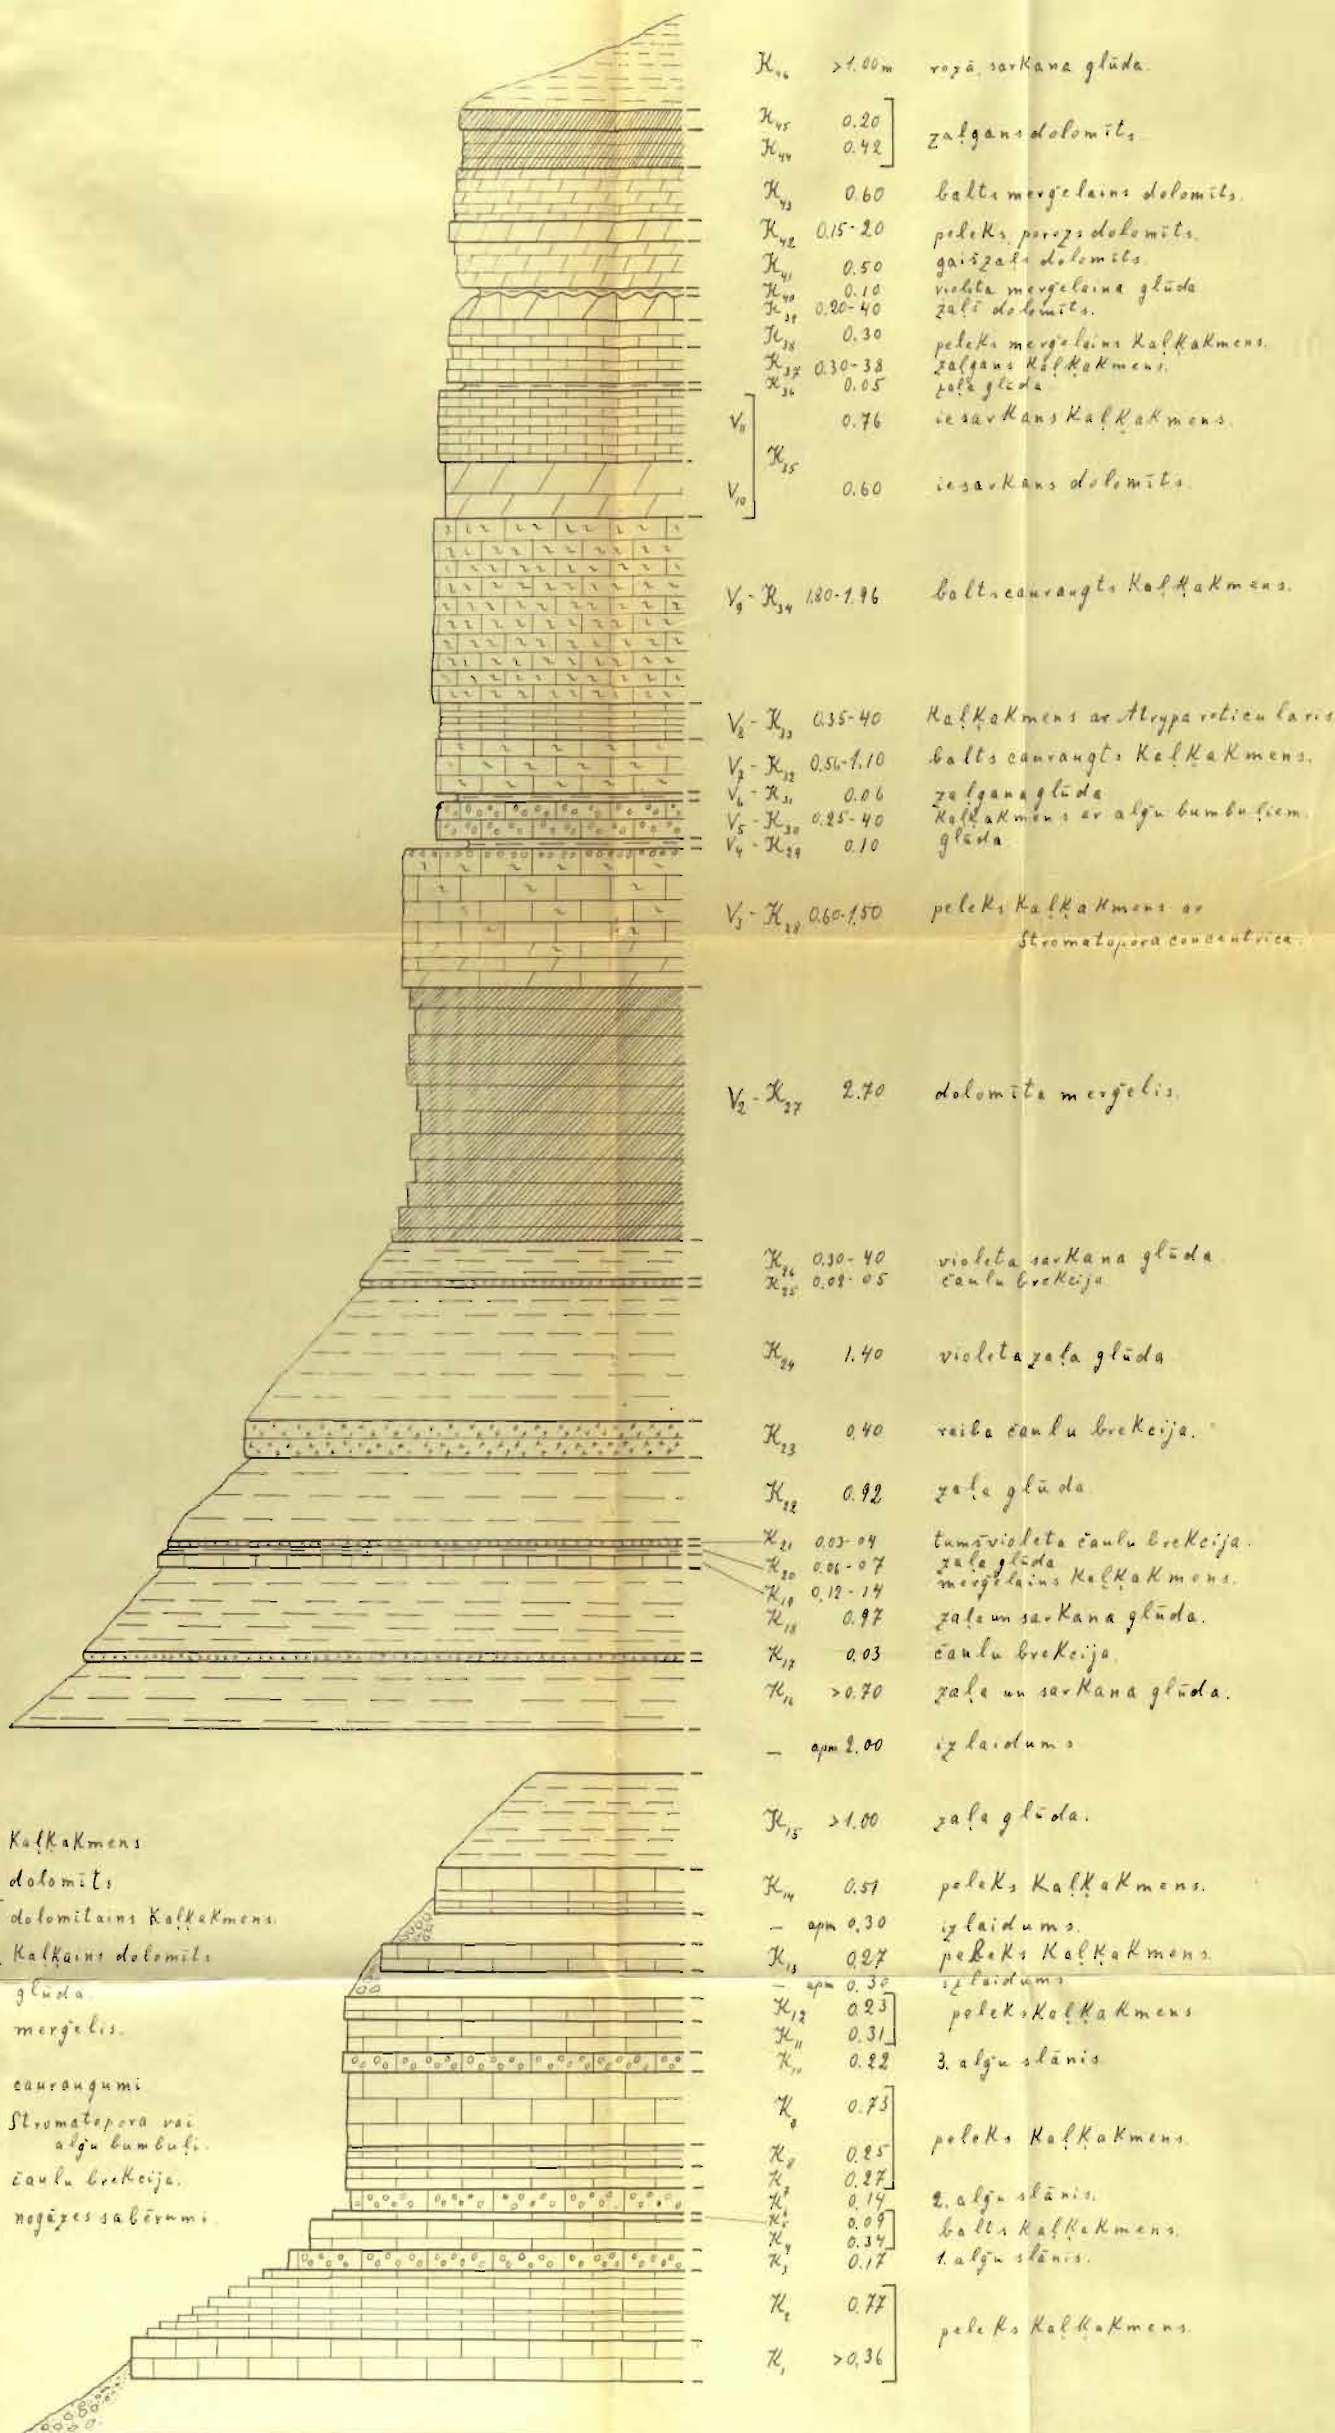 K₄₆ >1.00m rozā, sarkana glūda.
K₄₅ 0.20
zaļgans dolomīts
K₄₄ 0.42
K₄₃ 0.60 balts merģelains dolomīts.
K₄₂ 0.15-20 pelēks, porozs dolomīts.
K₄₁ 0.50 gaišzaļš dolomīts
K₄₀ 0.10 violeta merģelaina glūda
K₃₉ 0.20-40 zaļš dolomīts.
K₃₈ 0.30 pelēks merģelains kaļķakmens.
K₃₇ 0.30-38 zaļgans kaļķakmens.
K₃₆ 0.05 zaļa glūda
V₁₁ 0.76 iesarkans kaļķakmens.
K₃₅
V₁₀ 0.60 iesarkans dolomīts.
V₉ - K₃₄ 1.80-1.96 balts cauraugts kaļķakmens.
V₈ - K₃₃ 0.35-40 kaļķakmens ar Atrypa reticularis
V₇ - K₃₂ 0.56-1.10 balts cauraugts kaļķakmens.
V₆ - K₃₁ 0.06 zaļgana glūda
V₅ - K₃₀ 0.25-40 kaļķakmens ar alģu bumbuļiem.
V₄ - K₂₉ 0.10 glūda
V₃ - K₂₈ 0.60-1.50 pelēks kaļķakmens ar
Stromatopora concentrica.
V₂ - K₂₇ 2.70 dolomīta merģelis.
K₂₆ 0.30-40 violeta sarkana glūda
K₂₅ 0.02-05 čaulu brekcija
K₂₄ 1.40 violeta zaļa glūda
K₂₃ 0.40 raiba čaulu brekcija.
K₂₂ 0.92 zaļa glūda
K₂₁ 0.03-04 tumšvioleta čaulu brekcija.
K₂₀ 0.06-07 zaļa glūda
K₁₉ 0.12-14 merģelains kaļķakmens.
K₁₈ 0.97 zaļa un sarkana glūda.
K₁₇ 0.03 čaulu brekcija.
K₁₆ >0.70 zaļa un sarkana glūda.
— apm 2.00 izlaidums
K₁₅ >1.00 zaļa glūda.
K₁₄ 0.51 pelēks kaļķakmens.
- apm 0.30 izlaidums.
K₁₃ 0.27 pelēks kaļķakmens.
- apm 0.30 izlaidums
K₁₂ 0.23 pelēks kaļķakmens
K₁₁ 0.31
K₁₀ 0.22 3. alģu slānis
K₉ 0.73
pelēks kaļķakmens.
K₈ 0.25
K₇ 0.27
K₆ 0.14 2. alģu slānis.
K₅ 0.09
balts kaļķakmens.
K₄ 0.34
K₃ 0.17 1. alģu slānis.
K₂ 0.77
pelēks kaļķakmens.
K₁ >0.36
Kaļķakmens
dolomīts
dolomitains kaļķakmens.
Kaļķains dolomīts
glūda.
merģelis.
cauraugumi
Stromatopora vai
alģu bumbuļi.
čaulu brekcija.
nogāzes sabērumi